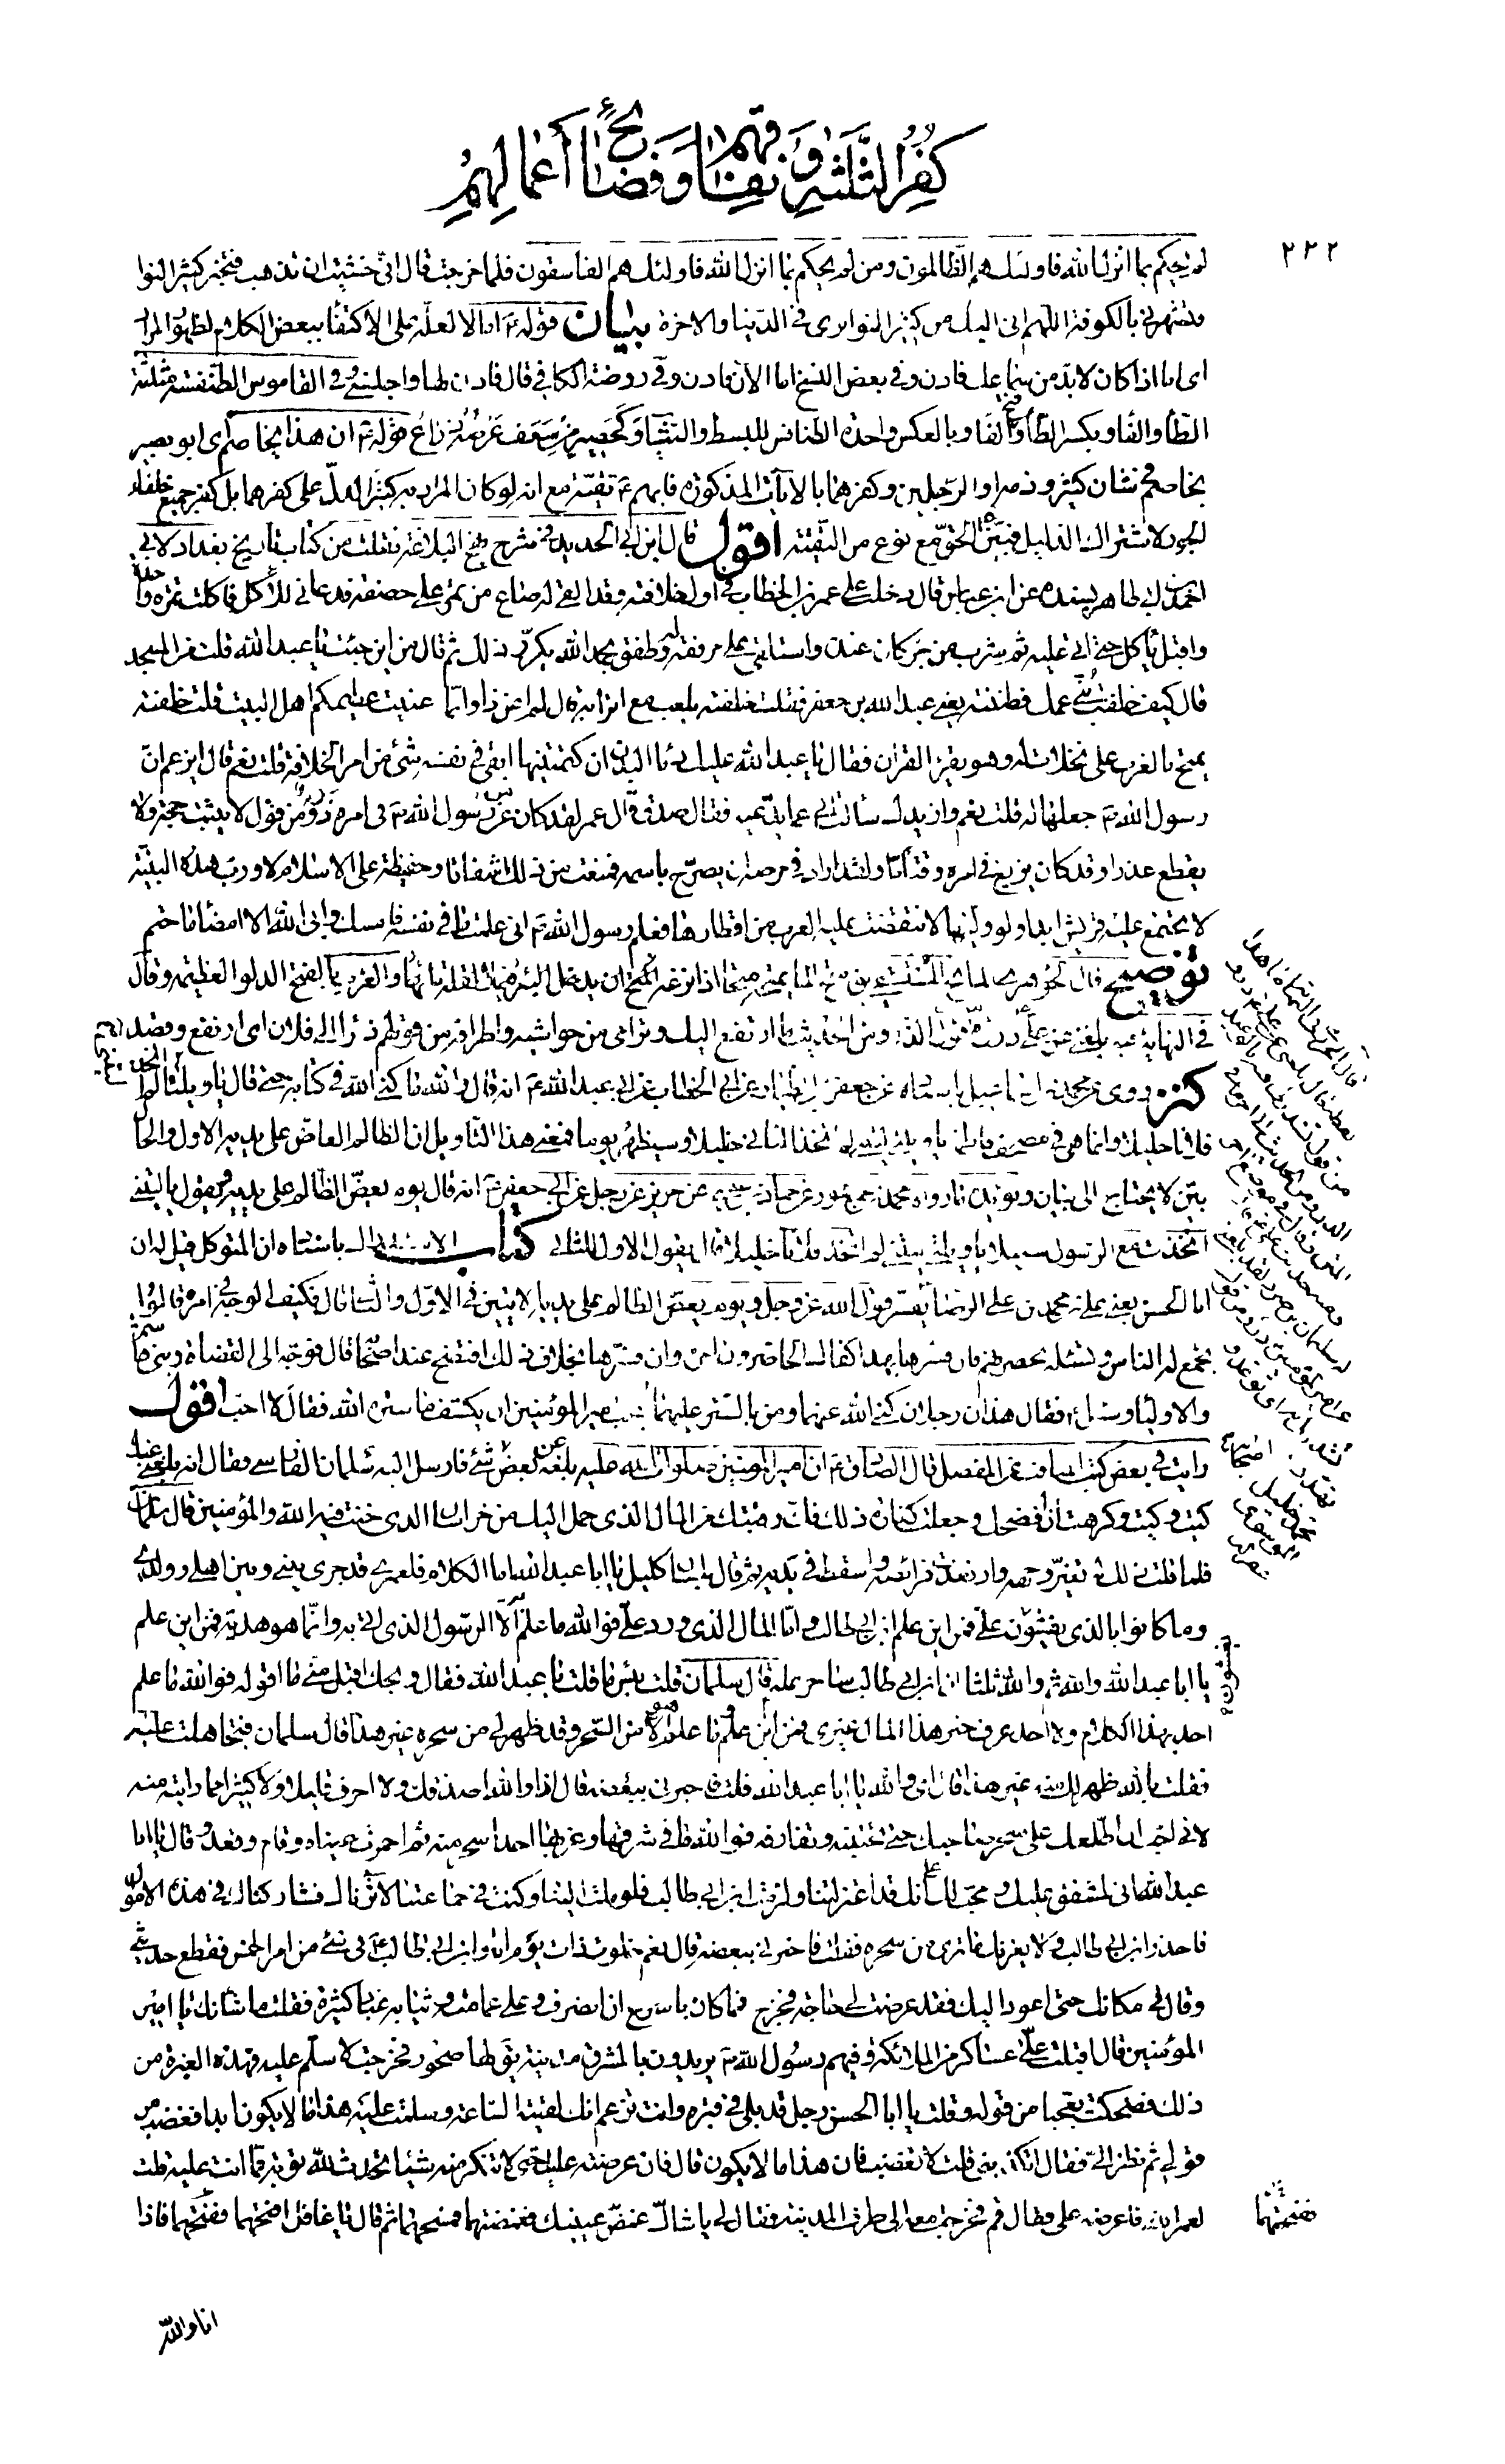 كفر الثلثة ونفاقهم وفضائح أعمالهم
٢٢٢
لم يحكم بما انزل الله فاولئك هم الظالمون ومن لم يحكم بما انزل الله فاولئك هم الفاسقون فلما خرجت قال انى خشيت ان تذهب فتخبر كثير النوا
فتشهرنى بالكوفة اللهم انى اليك من كثير النوا برى فى الدنيا والاخرة بيان قوله اما لا لعله على الاكتفاء ببعض الكلام لظهور المراد
اى اما اذا كان لا بد من فاذن وفى بعض النسخ اما الآن فاذن وفى روضة الكافى قال فاذن لها واجلسنى وفى القاموس الطنفسة مثلثة
الطاء والفاء وبكسر الطاء وفتح الفاء وبالعكس واحدة الطنافس للبسط والثياب وكحصير من سعف عرضه ذراع قوله ان هذا يخاصم اى ابو بصير
يخاصم فى شان كثير وذم الرجلين وكفرهما بالايات المذكورة فابهم تقية مع انه لو كان المراد به كثير لدل على كفرهما بل كفر جميع خلفاء
الجور لاشتراك الدليل فبين الحق مع نوع من التقية اقول قال ابن ابى الحديد فى شرح نهج البلاغة نقلت من كتاب تاريخ بغداد لابى
احمد بن ابى طاهر بسنده عن ابن عباس قال دخلت على عمر بن الخطاب فى اول خلافته وقد القى له صاع من تمر على خصفة فدعانى للاكل فاكلت تمرة واحدة
واقبل ياكل حتى اتى عليه ثم شرب من جر كان عنده واستلقى على مرفقة له وطفق يحمد الله يكرر ذلك ثم قال من اين جئت يا عبد الله قلت من المسجد
قال كيف خلفت بنى عمك فظننته يعنى عبد الله بن جعفر فقلت خلفته يلعب مع اترابه قال لم اعن ذا وانما عنيت عظيمكم اهل البيت قلت خلفته
يمتح بالغرب على نخلات له وهو يقرء القران فقال يا عبد الله عليك دماء البدن ان كتمتنيها ابقى فى نفسه شئ من امر الخلافة قلت نعم قال ايزعم ان
رسول الله جعلها له قلت نعم وازيدك سالت ابى عما يدعيه فقال صدق قال عمر لقد كان من رسول الله فى امره ذرو من قول لا يثبت حجة ولا
يقطع عذرا وقد كان يزيغ فى امره وقتا ما ولقد اراد فى مرضه ان يصرح باسمه فمنعت من ذلك اشفاقا وحفيظة على الاسلام لا ورب هذه البنية
لا يجتمع عليه قريش ابدا ولو وليها لانتقضت عليه العرب من اقطارها فعلم رسول الله انى علمت ما فى نفسه فامسك وابى الله الا امضاء ما حتم
توضيح قال الجوهرى الماتح المستقى متح الماء يمتحه متحا اذا نزعه والغرب بالفتح الدلو العظيمة وقال
فى النهاية فيه بلغنى عن على ذرو من قول الذرو من الحديث ما ارتفع اليك وترامى من حواشيه واطرافه من قولهم ذرا الى فلان اى ارتفع وقصد
كنز روى عن محمد بن اسمعيل باسناده عن جعفر بن الطيار عن ابى الخطاب عن ابى عبد الله انه قال والله ما كنى الله فى كتابه حتى قال يا ويلتى ليتنى لم
فلانا خليلا وانما هى فى مصحف فاطمة يا ويلتى ليتنى لم اتخذ الثانى خليلا وسيظهر يوما فمعنى هذا التاويل ان الظالم العاض على يديه الاول والحال
بين لا يحتاج الى بيان ويؤيده ما رواه محمد بن جمهور عن حماد بن عيسى عن حريز عن رجل عن ابى جعفر انه قال يوم يعض الظالم على يديه يقول يا ليتنى
اتخذت مع الرسول سبيلا يا ويلتى ليتنى لم اتخذ فلانا خليلا قال يقول الاول للثانى كتاب الاستدراك باسناده ان المتوكل قيل له ان
ابا الحسن يعنى على بن محمد بن على الرضا يفسر قول الله عز وجل ويوم يعض الظالم على يديه الايتين فى الاول والثانى قال فكيف الوجه فى امره قالوا
تجمع له الناس وتسئله بحضرتهم فان فسرها بهذا كفاك الحاضرون امره وان فسرها بخلاف ذلك افتضح عند اصحابه قال فوجه الى القضاة وبنى هاشم
والاولياء وسئل فقال هذان رجلان كنى الله عنهما ومن بالستر عليهما افيحب امير المؤمنين ان يكشف ما ستره الله فقال لا احب اقول
رايت فى بعض كتب المناقب عن المفضل قال الصادق ان امير المؤمنين صلوات الله عليه بلغه عن بعض شئ فارسل اليه سلمان الفارسى وقال انه بلغنى عنك
كيت وكيت وكرهت ان افضحك وجعلت كفارة ذلك فك رقبتك من المال الذى حمل اليك من خراسان الذى خنت فيه الله والمؤمنين قال سلمان
فلما قلت ذلك له تغير وجهه وارتعدت فرائصه واسقط فى يديه ثم قال بلسان كليل يا ابا عبد الله اما الكلام فلعمرى قد جرى بينى وبين اهلى وولدى
وما كانوا بالذى يفشون على فمن اين علم ابن ابى طالب واما المال الذى ورد على فوالله ما علم الا الرسول الذى اتى به وانما هو هدية فمن اين علم
يا ابا عبد الله والله ثم والله ثلثا ان ابن ابى طالب ساحر عليم قال سلمان قلت بئس ما قلت يا عبد الله فقال ويحك اقبل منى ما اقوله فوالله ما علم
احد بهذا الكلام ولا احد عرف خبر هذا المال غيرى فمن اين علم وما علم هو الا من السحر وقد ظهر لى من سحره غير هذا قال سلمان فتجاهلت عليه
فقلت بالله ظهر لك منه غير هذا قال اى والله يا ابا عبد الله قلت فاخبرنى ببعضه قال اذا والله اصدقك ولا احرف قليلا ولا كثيرا مما رايته منه
لانى احب ان اطلعك على سحر صاحبك حتى تجتنبه وتفارقه فوالله ما فى شرقها وغربها احد اسحر منه ثم احمرت عيناه وقام وقعد وقال يا ابا
عبد الله انى لمشفق عليك ومحب لك على انك قد اعتزلتنا ولزمت ابن ابى طالب فلو ملت الينا وكنت فى جماعتنا لاثرناك وشاركناك فى هذه الاموال
فاحذر ابن ابى طالب ولا يغرنك ما ترى من سحره فقلت فاخبرنى ببعضه قال نعم خلوت ذات يوم انا وابن ابى طالب فى شئ من امر الخمس فقطع حديثى
وقال لى مكانك حتى اعود اليك فقد عرضت لى حاجة فخرج فما كان باسرع ان انصرف وعلى عمامته وثيابه غبار كثيرة فقلت ما شانك يا امير
المؤمنين قال اقبلت على عساكر من الملائكة وفيهم رسول الله يريدون بالمشرق مدينة يقال لها صحور فخرجت لاسلم عليه فهذه الغبرة من
ذلك فضحكت تعجبا من قوله وقلت يا ابا الحسن رجل قد بلى فى قبره وانت تزعم انك لقيته الساعة وسلمت عليه هذا ما لا يكون ابدا فغضب من
قولى ثم نظر الى فقال اتكذبنى قلت لا تغضب فان هذا ما لا يكون قال فان عرضته عليك حتى لا تنكر منه شيئا تحدث لله توبة مما انت عليه قلت
لعمر الله فاعرضه على فقال قم فخرجت معه الى طرف المدينة وقال لى يا شاك غمض عينيك فغمضتهما فمسحهما ثم قال يا غافل افتحهما ففتحتهما فاذا
انا والله